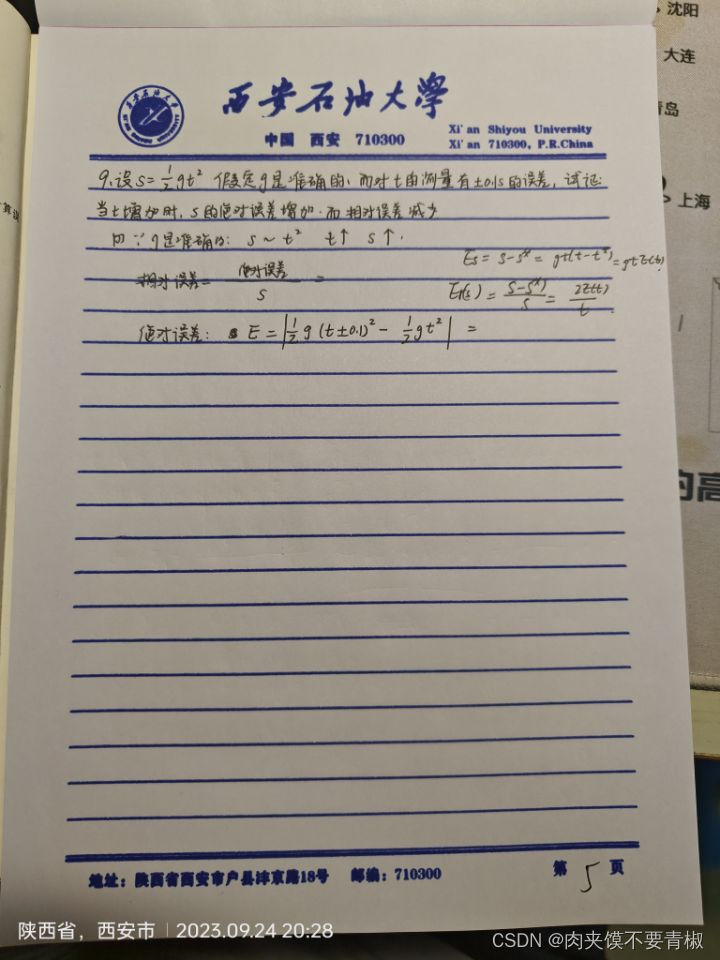 西安石油大學
中国 西安 710300
Xi'an Shiyou University
Xi'an 710300, P.R.China
9.设S=½gt² 假定g是准确的、而对t的测量有±0.1s的误差,试证:
当t增加时,S的绝对误差增加.而相对误差减少
∵g是准确的: S~t² t↑ S↑.
相对误差= 绝对误差/S =
Es = S-S* = gt(t-t*) = gtε(t)
Er(s) = (S-S*)/S = 2ε(t)/t
绝对误差: E = |½g(t±0.1)² - ½gt²| =
地址:陕西省西安市户县沣京路18号 邮编:710300
第 5 页
陕西省,西安市 | 2023.09.24 20:28
CSDN @肉夹馍不要青椒
沈阳
大连
青岛
上海
的高